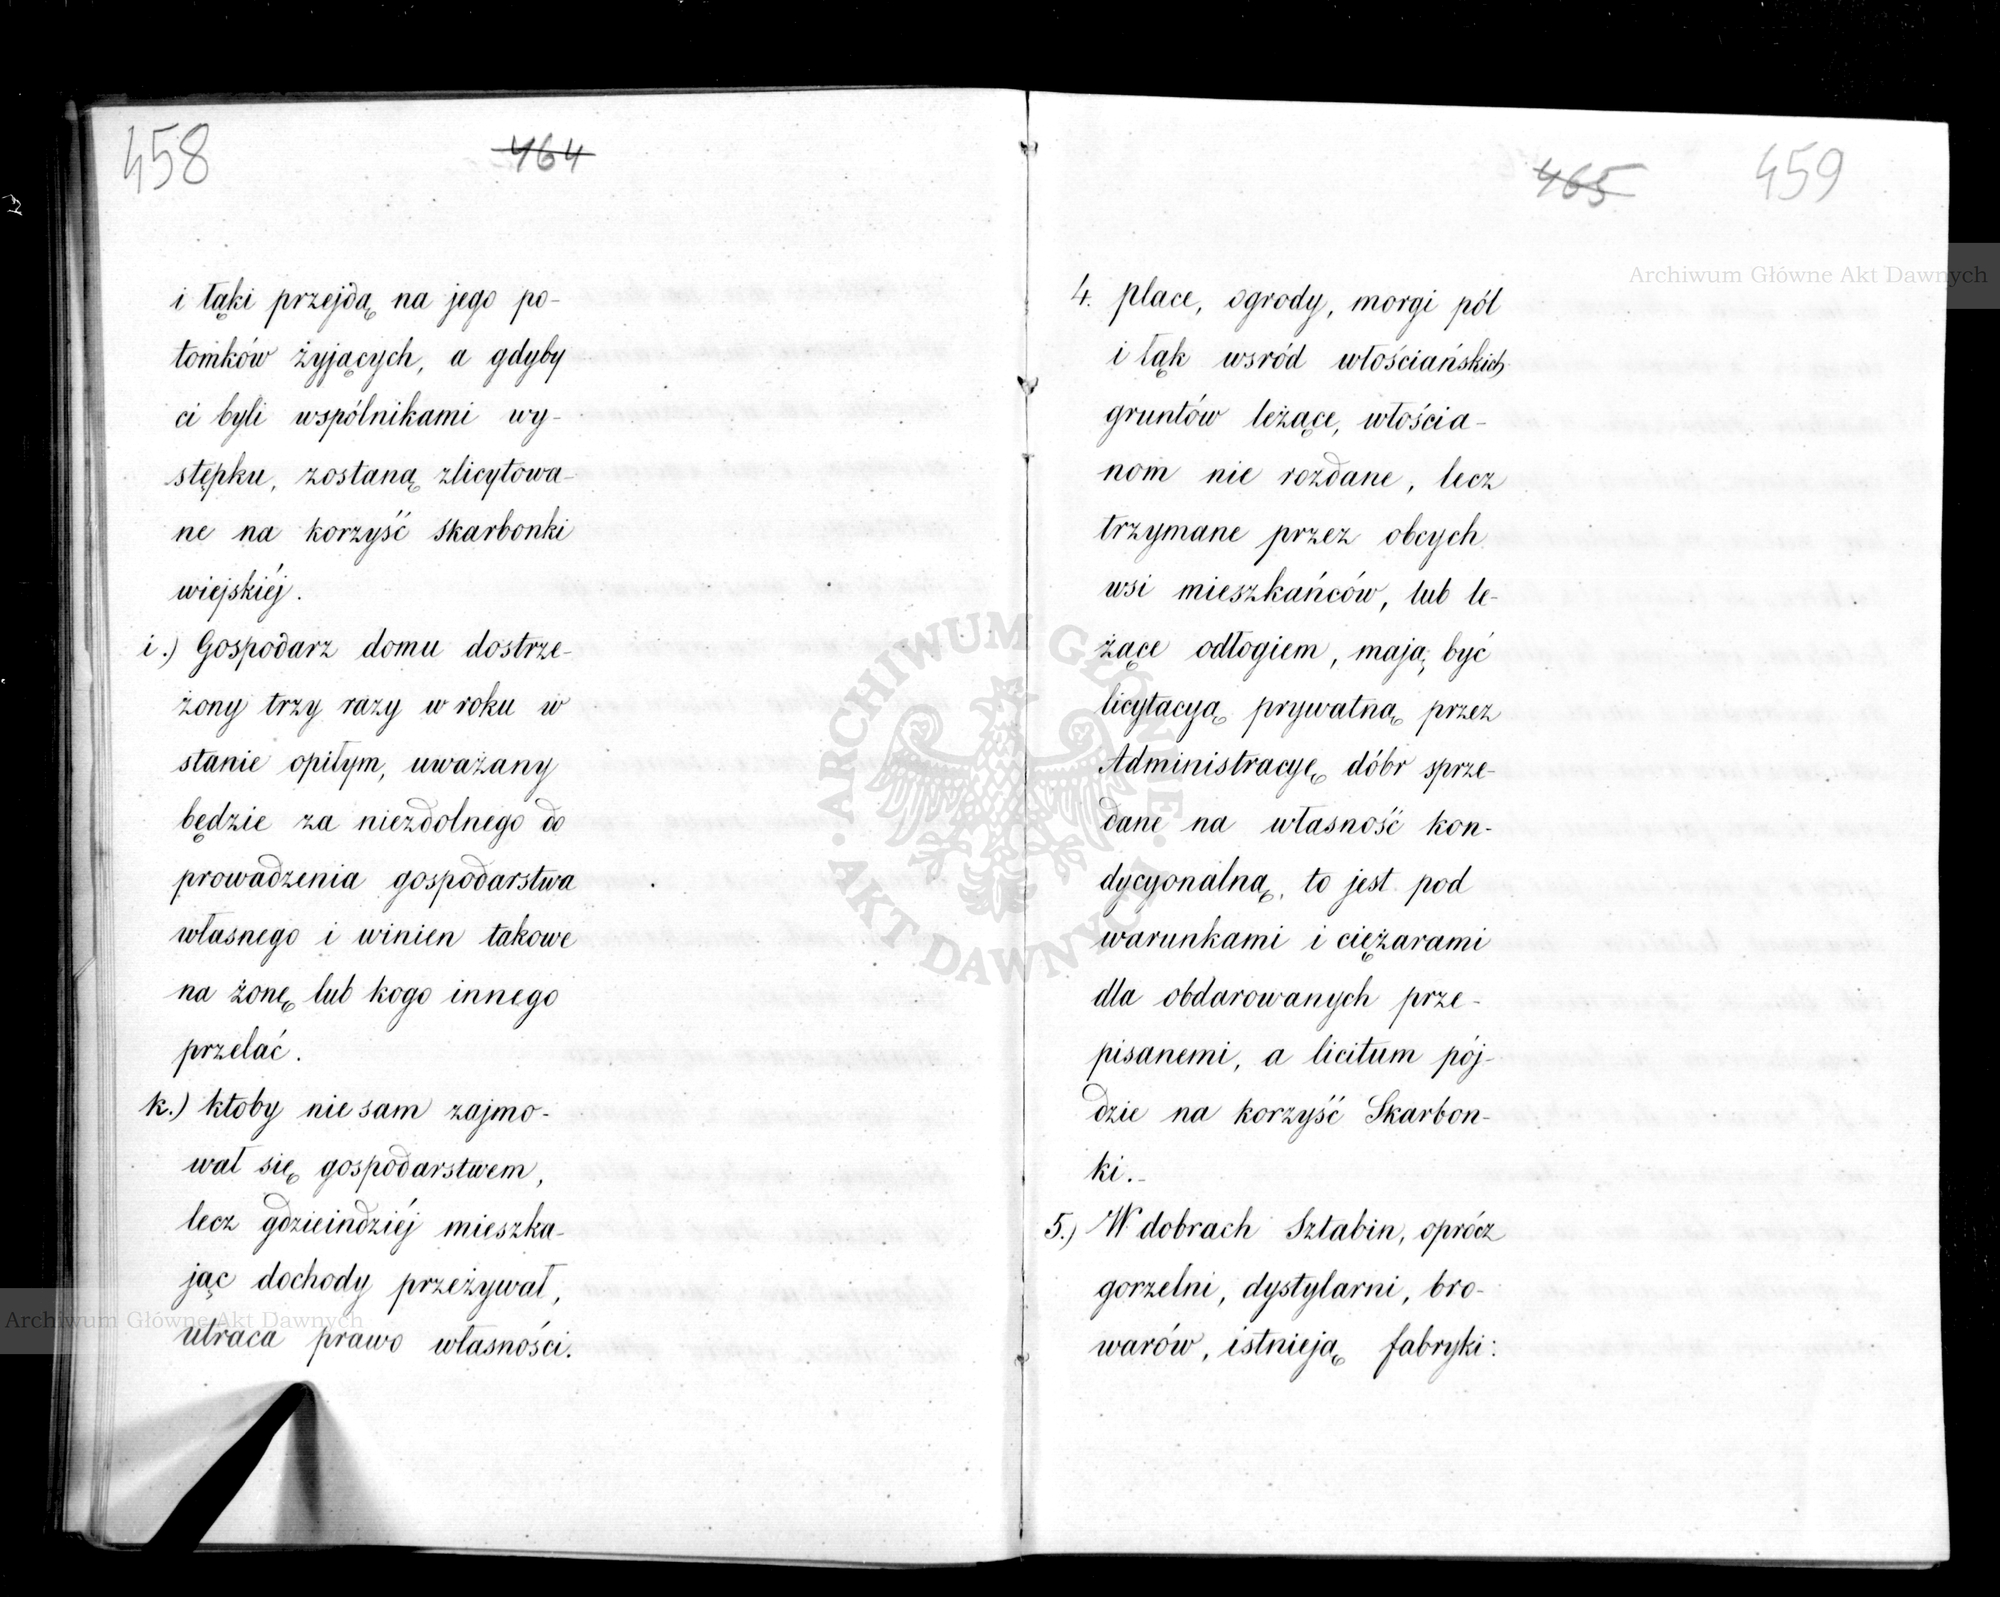 458
464
i łąki przejdą na jego po-
tomków żyjących, a gdyby
ci byli wspólnikami wy-
stępku, zostaną zlicytowa-
ne na korzyść skarbonki
wiejskiéj.
i.) Gospodarz domu dostrze-
żony trzy razy w roku w
stanie opiłym, uważany
będzie za niezdolnego do
prowadzenia gospodarstwa
własnego i winien takowe
na żonę lub kogo innego
przelać.
k.) ktoby nie sam zajmo-
wał się gospodarstwem,
lecz gdzieindziéj mieszka-
jąc dochody przeżywał,
utraca prawo własności.
465
459
4. place, ogrody, morgi pól
i łąk wsród włościańskich
gruntów leżące, włościa-
nom nie rozdane, lecz
trzymane przez obcych
wsi mieszkańców, lub le-
żące odłogiem, mają być
licytacyą prywatną przez
Administracyę dóbr sprze-
dane na własność kon-
dycyonalną, to jest pod
warunkami i ciężarami
dla obdarowanych prze-
pisanemi, a licitum pój-
dzie na korzyść Skarbon-
ki.-
5.) W dobrach Sztabin, oprócz
gorzelni, dystylarni, bro-
warów, istnieją fabryki:
Archiwum Główne Akt Dawnych
ARCHIWUM GŁÓWNE AKT DAWNYCH
Archiwum Główne Akt Dawnych